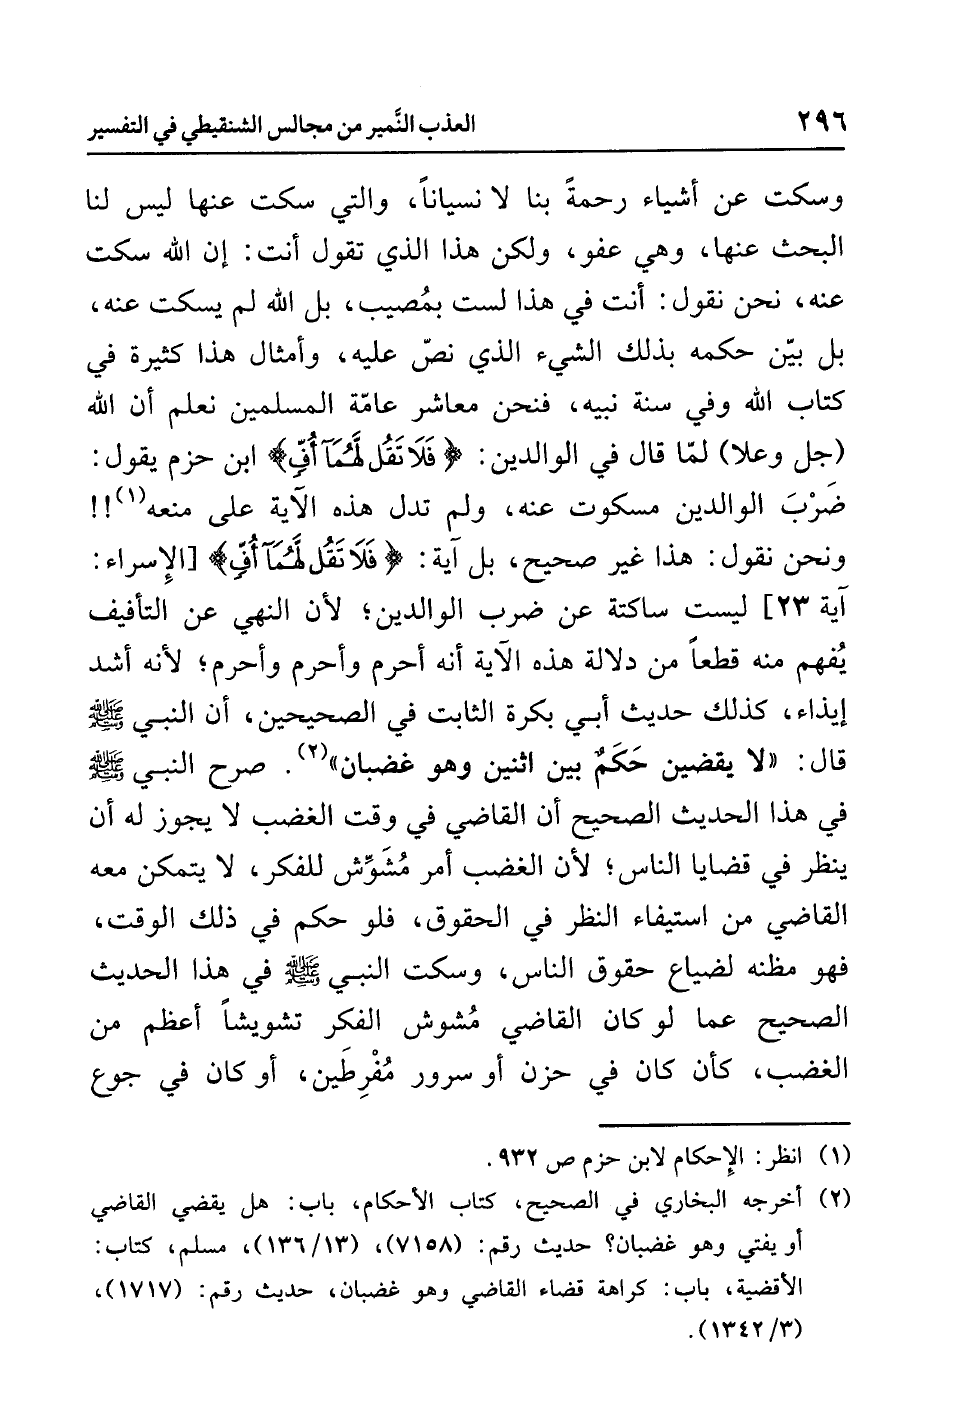 ٢٩٦ العذب النَّمير من مجالس الشنقيطي في التفسير
وسكت عن أشياء رحمةً بنا لا نسياناً، والتي سكت عنها ليس لنا
البحث عنها، وهي عفو، ولكن هذا الذي تقول أنت: إن الله سكت
عنه، نحن نقول: أنت في هذا لست بمُصيب، بل الله لم يسكت عنه،
بل بيّن حكمه بذلك الشيء الذي نصّ عليه، وأمثال هذا كثيرة في
كتاب الله وفي سنة نبيه، فنحن معاشر عامّة المسلمين نعلم أن الله
(جل وعلا) لمّا قال في الوالدين: ﴿فَلَا تَقُل لَّهُمَآ أُفٍّ﴾ ابن حزم يقول:
ضَرْبَ الوالدين مسكوت عنه، ولم تدل هذه الآية على منعه(١)!!
ونحن نقول: هذا غير صحيح، بل آية: ﴿فَلَا تَقُل لَّهُمَآ أُفٍّ﴾ [الإسراء:
آية ٢٣] ليست ساكتة عن ضرب الوالدين؛ لأن النهي عن التأفيف
يُفهم منه قطعاً من دلالة هذه الآية أنه أحرم وأحرم وأحرم؛ لأنه أشد
إيذاء، كذلك حديث أبي بكرة الثابت في الصحيحين، أن النبي ﷺ
قال: «لا يقضين حَكَمٌ بين اثنين وهو غضبان»(٢). صرح النبي ﷺ
في هذا الحديث الصحيح أن القاضي في وقت الغضب لا يجوز له أن
ينظر في قضايا الناس؛ لأن الغضب أمر مُشَوِّش للفكر، لا يتمكن معه
القاضي من استيفاء النظر في الحقوق، فلو حكم في ذلك الوقت،
فهو مظنه لضياع حقوق الناس، وسكت النبي ﷺ في هذا الحديث
الصحيح عما لو كان القاضي مُشوش الفكر تشويشاً أعظم من
الغضب، كأن كان في حزن أو سرور مُفْرِطَين، أو كان في جوع
(١) انظر: الإحكام لابن حزم ص ٩٣٢.
(٢) أخرجه البخاري في الصحيح، كتاب الأحكام، باب: هل يقضي القاضي
أو يفتي وهو غضبان؟ حديث رقم: (٧١٥٨)، (١٣٦/١٣)، مسلم، كتاب:
الأقضية، باب: كراهة قضاء القاضي وهو غضبان، حديث رقم: (١٧١٧)،
(١٣٤٢/٣).